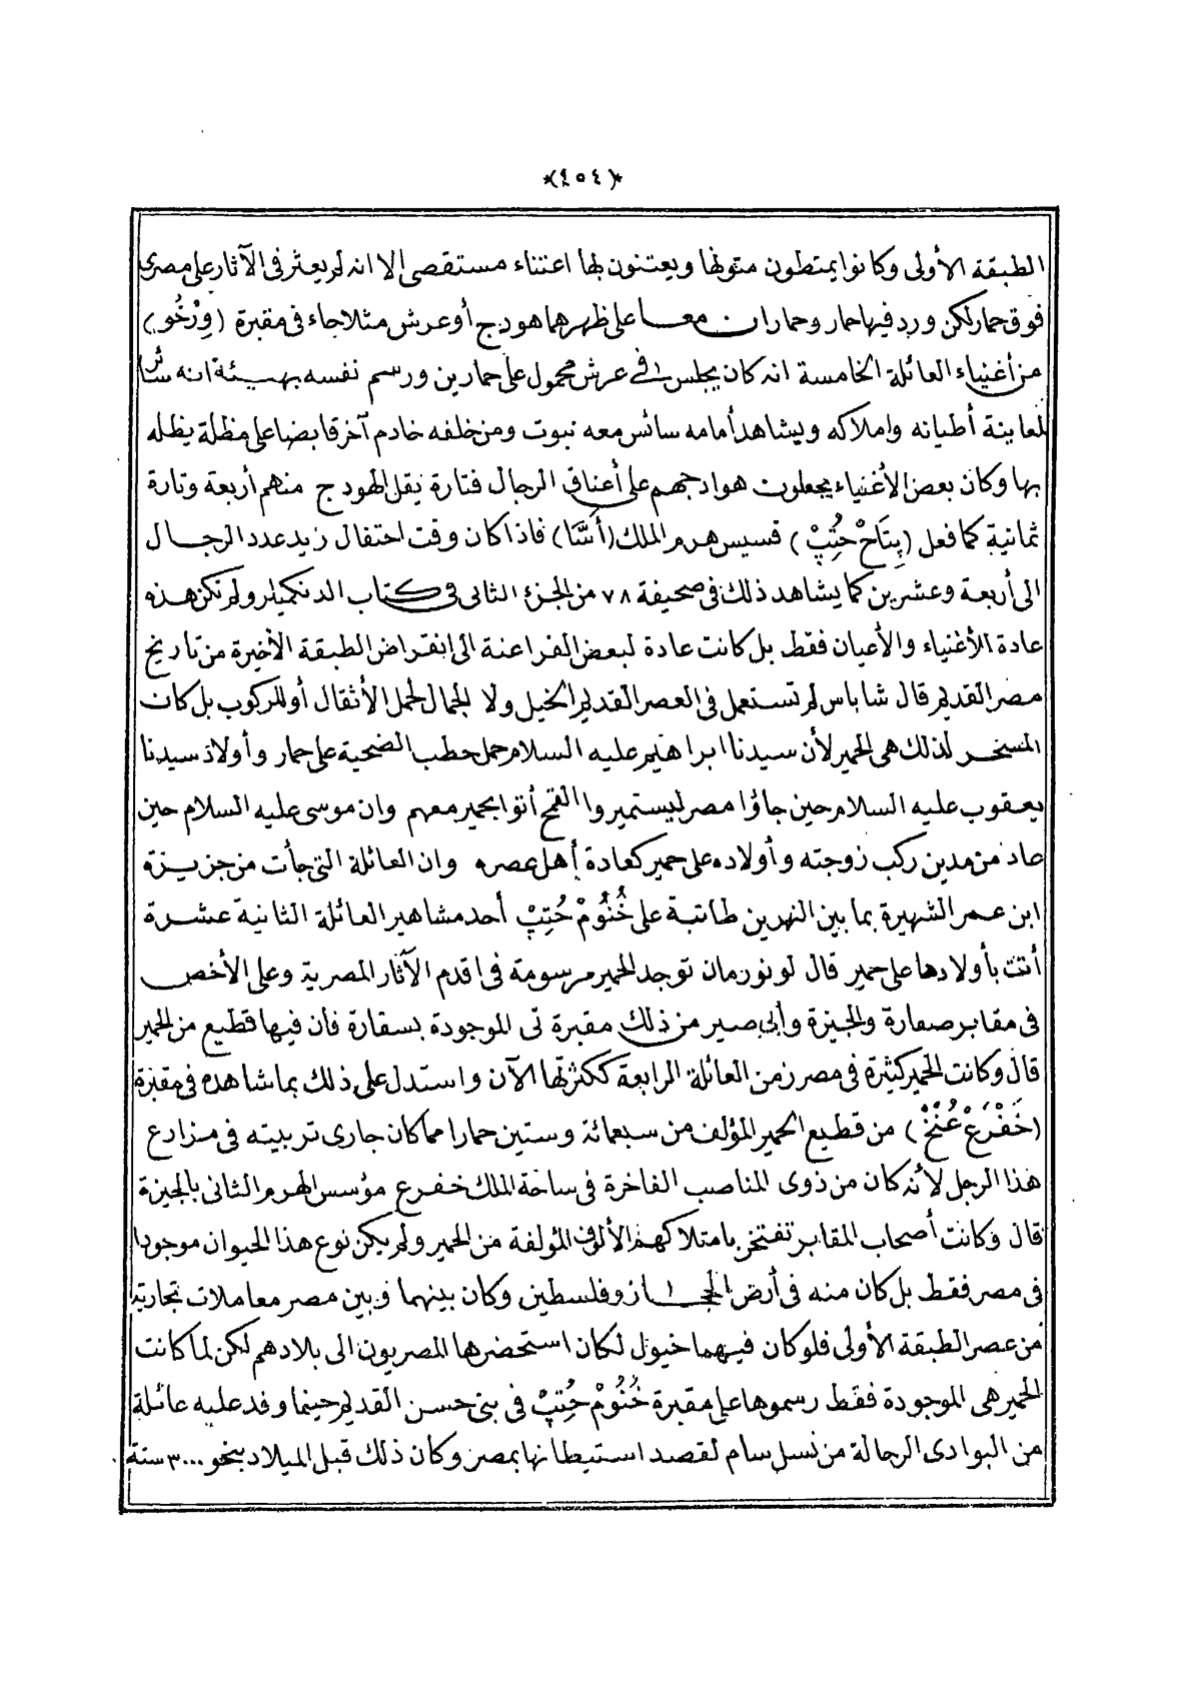 *(٤٥٤)*
الطبقة الأولى وكانوا يمتطون متونها ويعتنون بها اعتناء مستقصى إلا انه لم يعثر فى الآثار على مصرى
فوق حمار لكن ورد فيها حمار وحماران معا على ظهرهما هودج أو عرش مثلا جاء فى مقبرة (وِرْخُو)
من أغنياء العائلة الخامسة انه كان يجلس فى عرش محمول على حمارين ورسم نفسه بهيئة انه سائر
لمعاينة أطيانه واملاكه ويشاهد أمامه سائس معه نبوت ومن خلفه خادم آخر قابضا على مظلة يظله
بها وكان بعض الأغنياء يجعلون هوادجهم على أعناق الرجال فتارة ينقل الهودج منهم أربعة وتارة
ثمانية كما فعل (بِتَاحْ حُتِبْ) قسيس هرم الملك (أَسَّا) فاذا كان وقت احتفال زيد عدد الرجال
الى أربعة وعشرين كما يشاهد ذلك فى صحيفة ٧٨ من الجزء الثانى فى كتاب الدنكميلر ولم تكن هذه
عادة الأغنياء والأعيان فقط بل كانت عادة لبعض الفراعنة الى انقراض الطبقة الأخيرة من تاريخ
مصر القديم قال شاباس لم تستعمل فى العصر القديم الخيل ولا الجمال لحمل الأثقال أو للركوب بل كان
المسخر لذلك هى الحمير لأن سيدنا ابراهيم عليه السلام حمل حطب الضحية على حمار وأولاد سيدنا
يعقوب عليه السلام حين جاؤا مصر ليستميروا القمح أتوا بحمير معهم وان موسى عليه السلام حين
عاد من مدين ركب زوجته وأولاده على حمير كعادة أهل عصره وان العائلة التى جأت من جزيرة
ابن عمر الشهيرة بما بين النهرين طانبة على خُنُومْ حُتِبْ أحد مشاهير العائلة الثانية عشرة
أتت بأولادها على حمير قال لونورمان توجد الحمير مرسومة فى اقدم الآثار المصرية وعلى الأخص
فى مقابر صقارة والجيزة وأبى صير من ذلك مقبرة تى الموجودة بسقارة فان فيها قطيع من الحمير
قال وكانت الحمير كثيرة فى مصر زمن العائلة الرابعة ككثرتها الآن واستدل على ذلك بما شاهده فى مقبرة
(خَفْرَعْ عُنْخْ) من قطيع الحمير المؤلف من سبعمائة وستين حمارا مما كان جارى تربيته فى مزارع
هذا الرجل لأنه كان من ذوى المناصب الفاخرة فى ساحة الملك خفرع مؤسس الهرم الثانى بالجيزة
قال وكانت أصحاب المقابر تفتخر بامتلاكهم الألوف المؤلفة من الحمير ولم يكن نوع هذا الحيوان موجودا
فى مصر فقط بل كان منه فى أرض الحجاز وفلسطين وكان بينهما وبين مصر معاملات تجارية
من عصر الطبقة الأولى فلو كان فيهما خيول لكان استحضرها المصريون الى بلادهم لكن لما كانت
الحمير هى الموجودة فقط رسموها على مقبرة خُنُومْ حُتِبْ فى بنى حسن القديم حينما وفد عليه عائلة
من البوادى الرحالة من نسل سام لقصد استيطانها بمصر وكان ذلك قبل الميلاد بنحو ٣٠٠٠ سنة